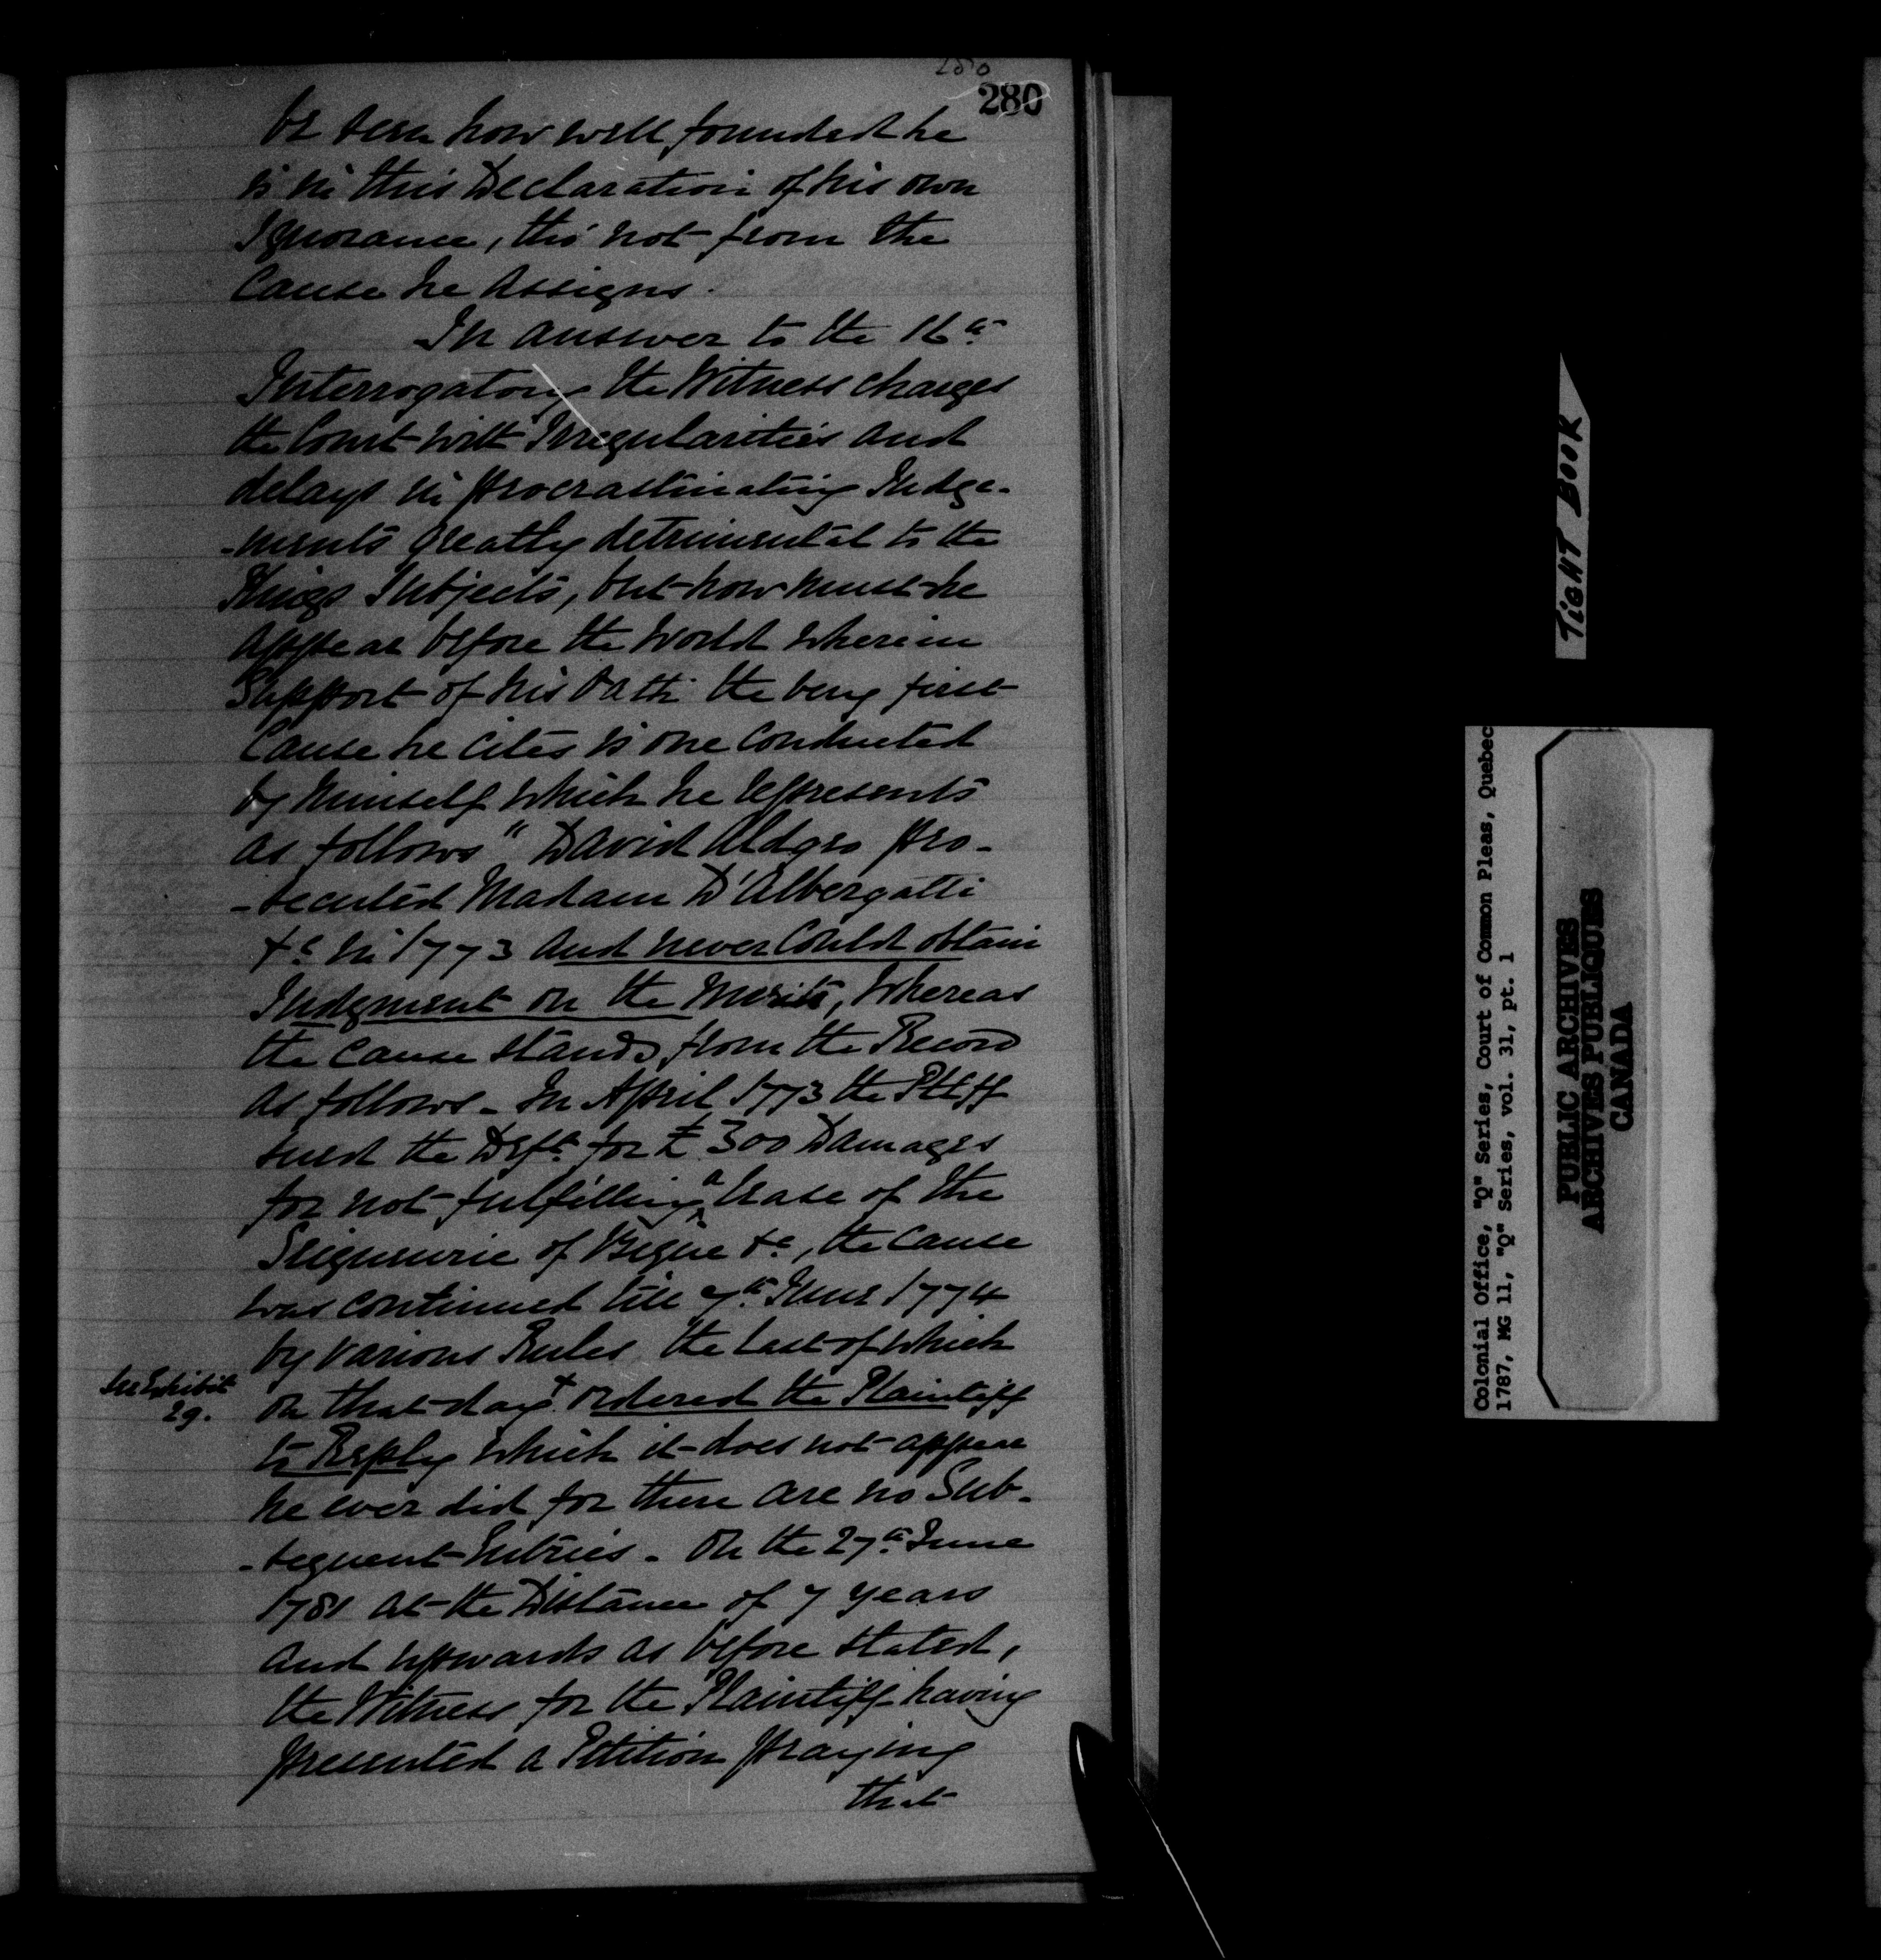 280
280
be seen how well founded he
is in this Declaration of his own
Ignorance, tho' not from the
Cause he assigns.
In answer to the 16th
Interrogatory the Witness charges
the Court with Irregularities and
delays in procrastinating Judge-
-ments greatly detrimental to the
Kings Subjects, but how must he
appear before the World when in
Support of his Oath the very first
Cause he cites is one conducted
by himself which he represents
as follows "David pro-
-secuted Madam D'Albergatti
&c in 1773 and never could obtain
Judgment on the Merits, Whereas
the Cause stands from the Record
as follows - In April 1773 the Pltff
sued the Deft for £300 Damages
for not fulfilling a Lease of the
Seigneurie of &c, the Cause
was continued till 7th June 1774
by various Rules the last of which
See Exhibit
29.
on that day + ordered the Plaintiff
to Reply which it does not appear
he ever did for there are no Sub-
-sequent Entries - On the 27th June
1781 at the Distance of 7 years
and upwards as before stated,
the Witness for the Plaintiff having
presented a Petition praying
that
TIGHT BOOK
Colonial Office, "Q" Series, Court of Common Pleas, Quebec
1787, MG 11, "Q" Series, vol. 31, pt. 1
PUBLIC ARCHIVES
ARCHIVES PUBLIQUES
CANADA